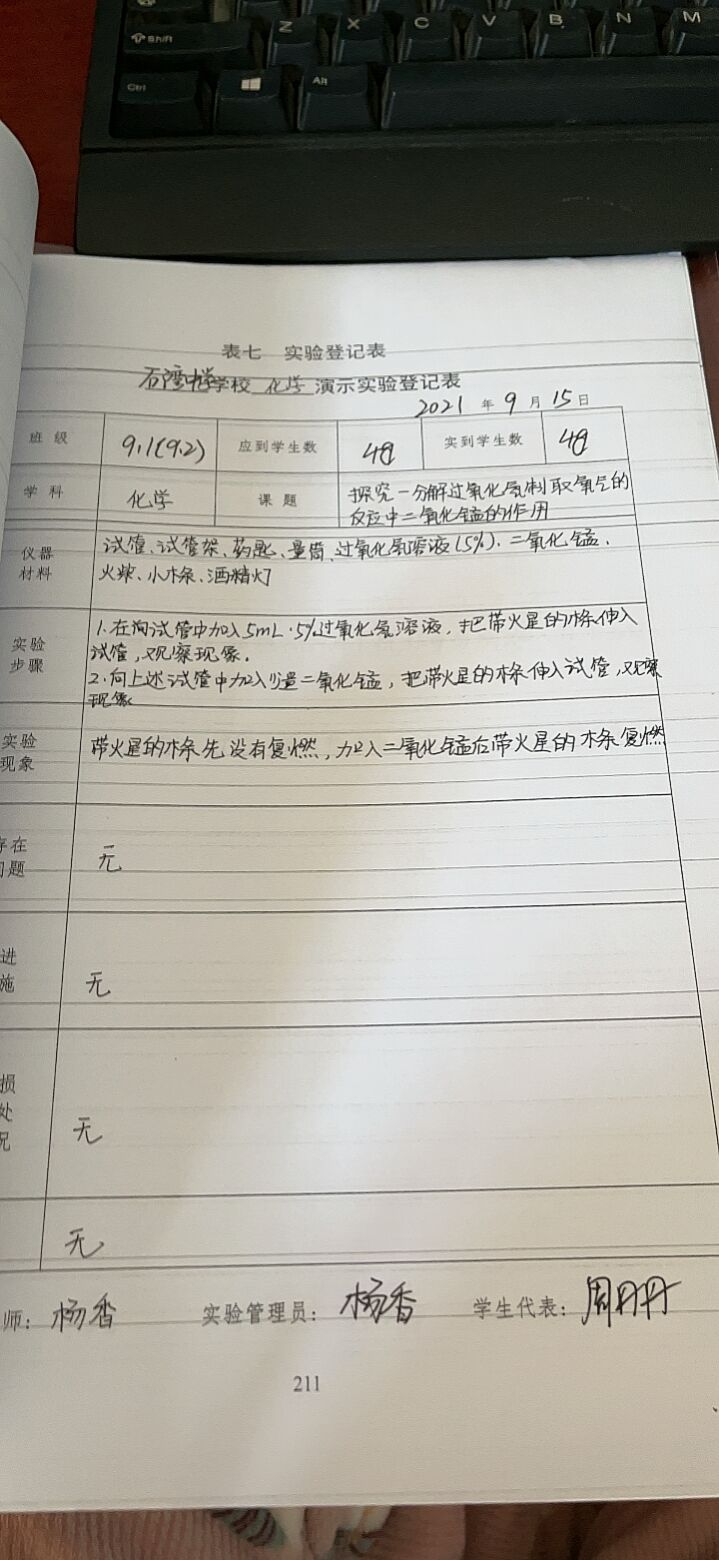 Shift
Z X C V B N M
Ctrl
Alt
表七 实验登记表
石湾中学学校 化学 演示实验登记表
2021 年 9 月 15 日
班 级 9.1(9.2) 应到学生数 48 实到学生数 48
学 科 化学 课 题 探究一分解过氧化氢制取氧气的
反应中二氧化锰的作用
仪器 试管、试管架、药匙、量筒、过氧化氢溶液(5%)、二氧化锰、
材料 火柴、小木条、酒精灯
实验 1.在向试管中加入5mL·5%过氧化氢溶液,把带火星的木条伸入
步骤 试管,观察现象.
2.向上述试管中加入少量二氧化锰,把带火星的木条伸入试管,观察
现象
实验 带火星的木条先没有复燃,加入二氧化锰后带火星的木条复燃
现象
存在
问题 无
进
施 无
损
处
况 无
无
师: 杨香 实验管理员: 杨香 学生代表: 周丹丹
211